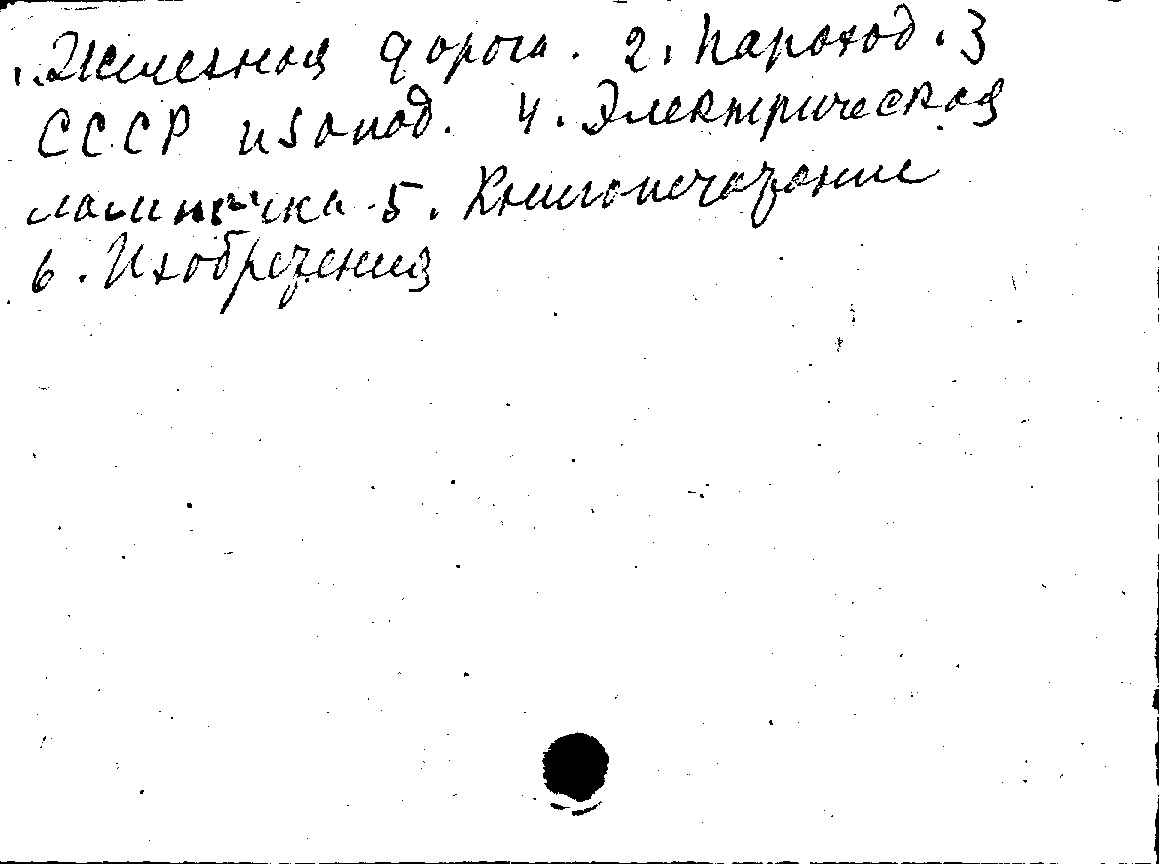 1. Железная дорога. 2. Пароход. 3
СССР и Запад. 4. Электрическая
лампочка 5. Книгопечатание
6. Изобретения